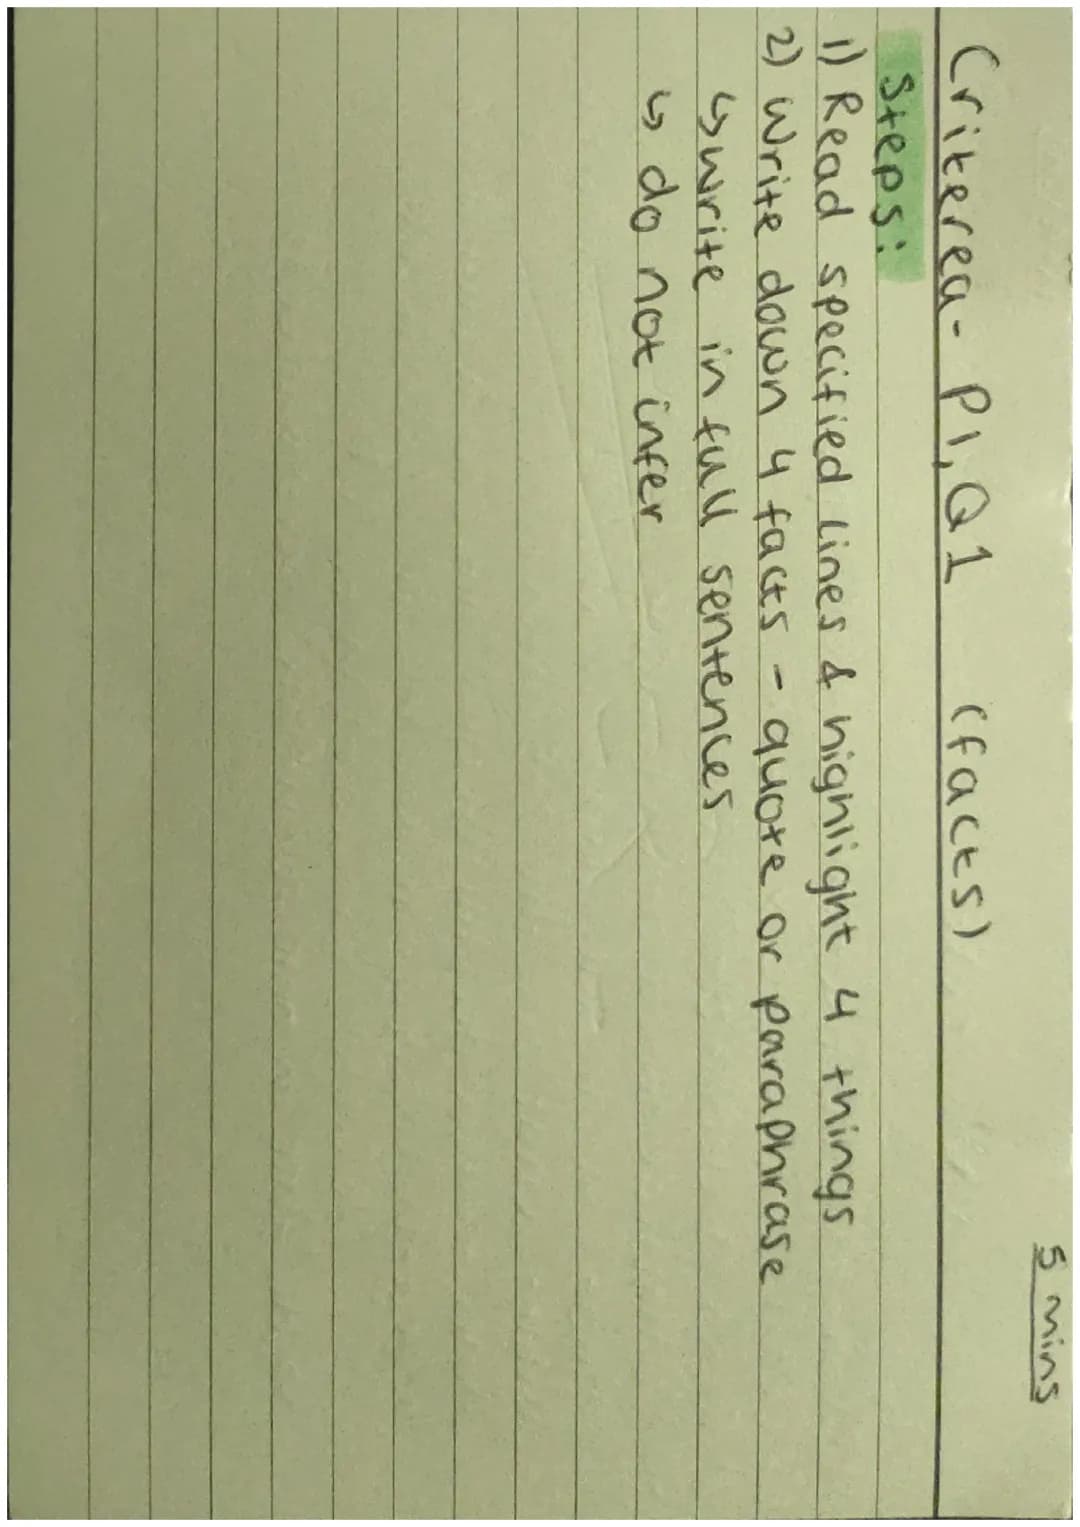 5 mins
Criterea- P1, Q1 (facts)
Steps:
1) Read specified lines & highlight 4 things
2) Write down 4 facts - quote or paraphrase
↳ write in full sentences
↳ do not infer